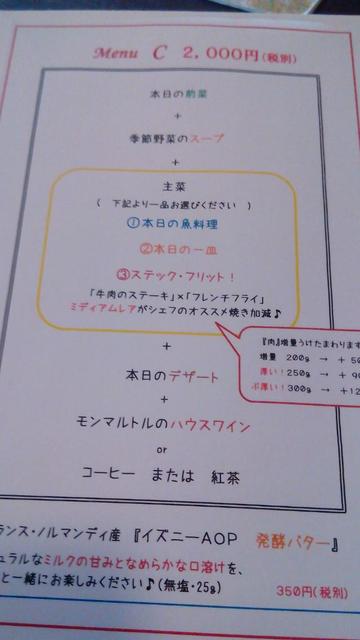 Menu C 2,000円(税別)
本日の前菜
+
季節野菜のスープ
+
主菜
( 下記より一品お選びください )
①本日の魚料理
②本日の一皿
③ステック・フリット!
「牛肉のステーキ」×「フレンチフライ」
ミディアムレアがシェフのオススメ焼き加減♪
『肉』増量うけたまわります
増量 200g → + 50
厚い!250g → + 90
ぶ厚い!300g → +12
+
本日のデザート
+
モンマルトルのハウスワイン
or
コーヒー または 紅茶
ランス・ノルマンディ産 『イズニーAOP 発酵バター』
ュラルなミルクの甘みとなめらかな口溶けを、
と一緒にお楽しみください♪(無塩・25g)
350円(税別)